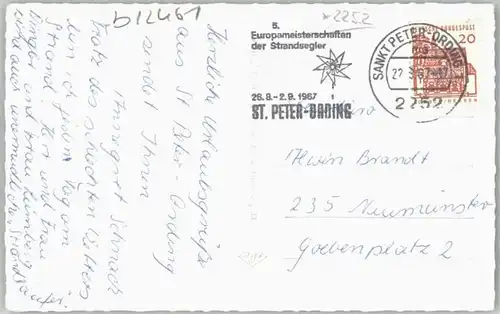 b12461
*2252
5.
Europameisterschaften
der Strandsegler
26.8.-2.9.1967
ST. PETER-ORDING
SANKT PETER-ORDING
2252
DEUTSCHE BUNDESPOST
20
Herzliche Urlaubsgrüße
aus St. Peter-Ording
sendet Ihnen
Annegret
Trotz des schlechten Wetters
bin ich jeden Tag am
Strand. Herr und Frau
und Frau
sind auch unermüdliche
Herrn Brandt
235 Neumünster
Goebenplatz 2